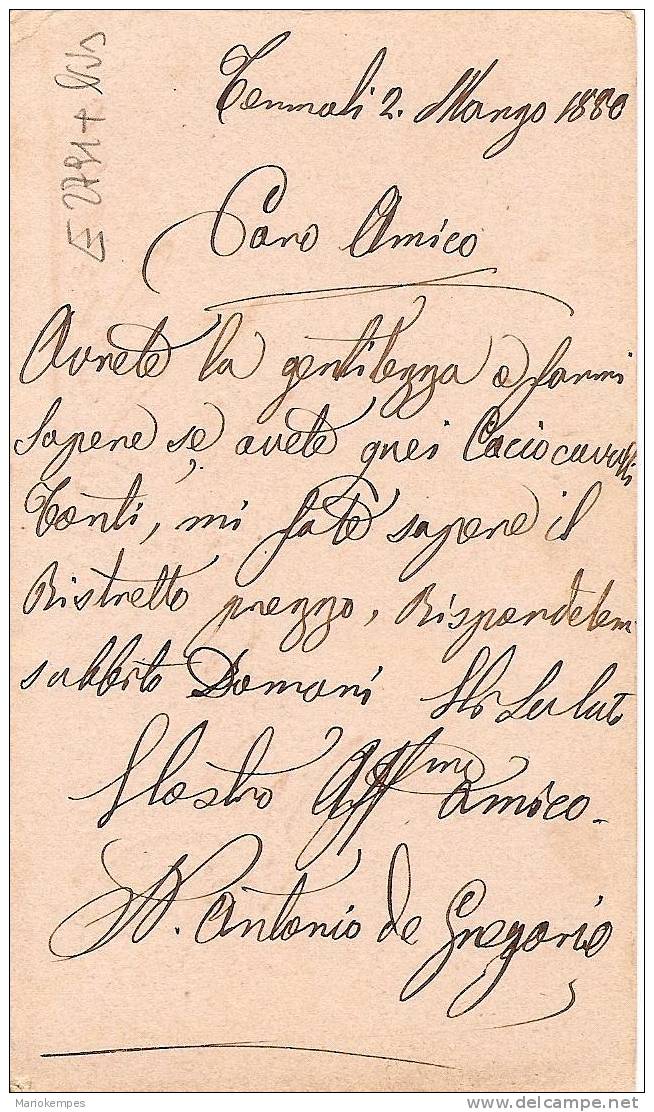 2 Marzo 1880
Caro Amico
Avrete la gentilezza a farmi
Sapere se avete quei Caciocavalli
Conti, mi fate sapere il
Ristretto prezzo, Rispondetem
subbito Domani Vi Saluto
Vostro Affmo amico.
Antonio de Gregorio
Mariokempes
delcampe.net